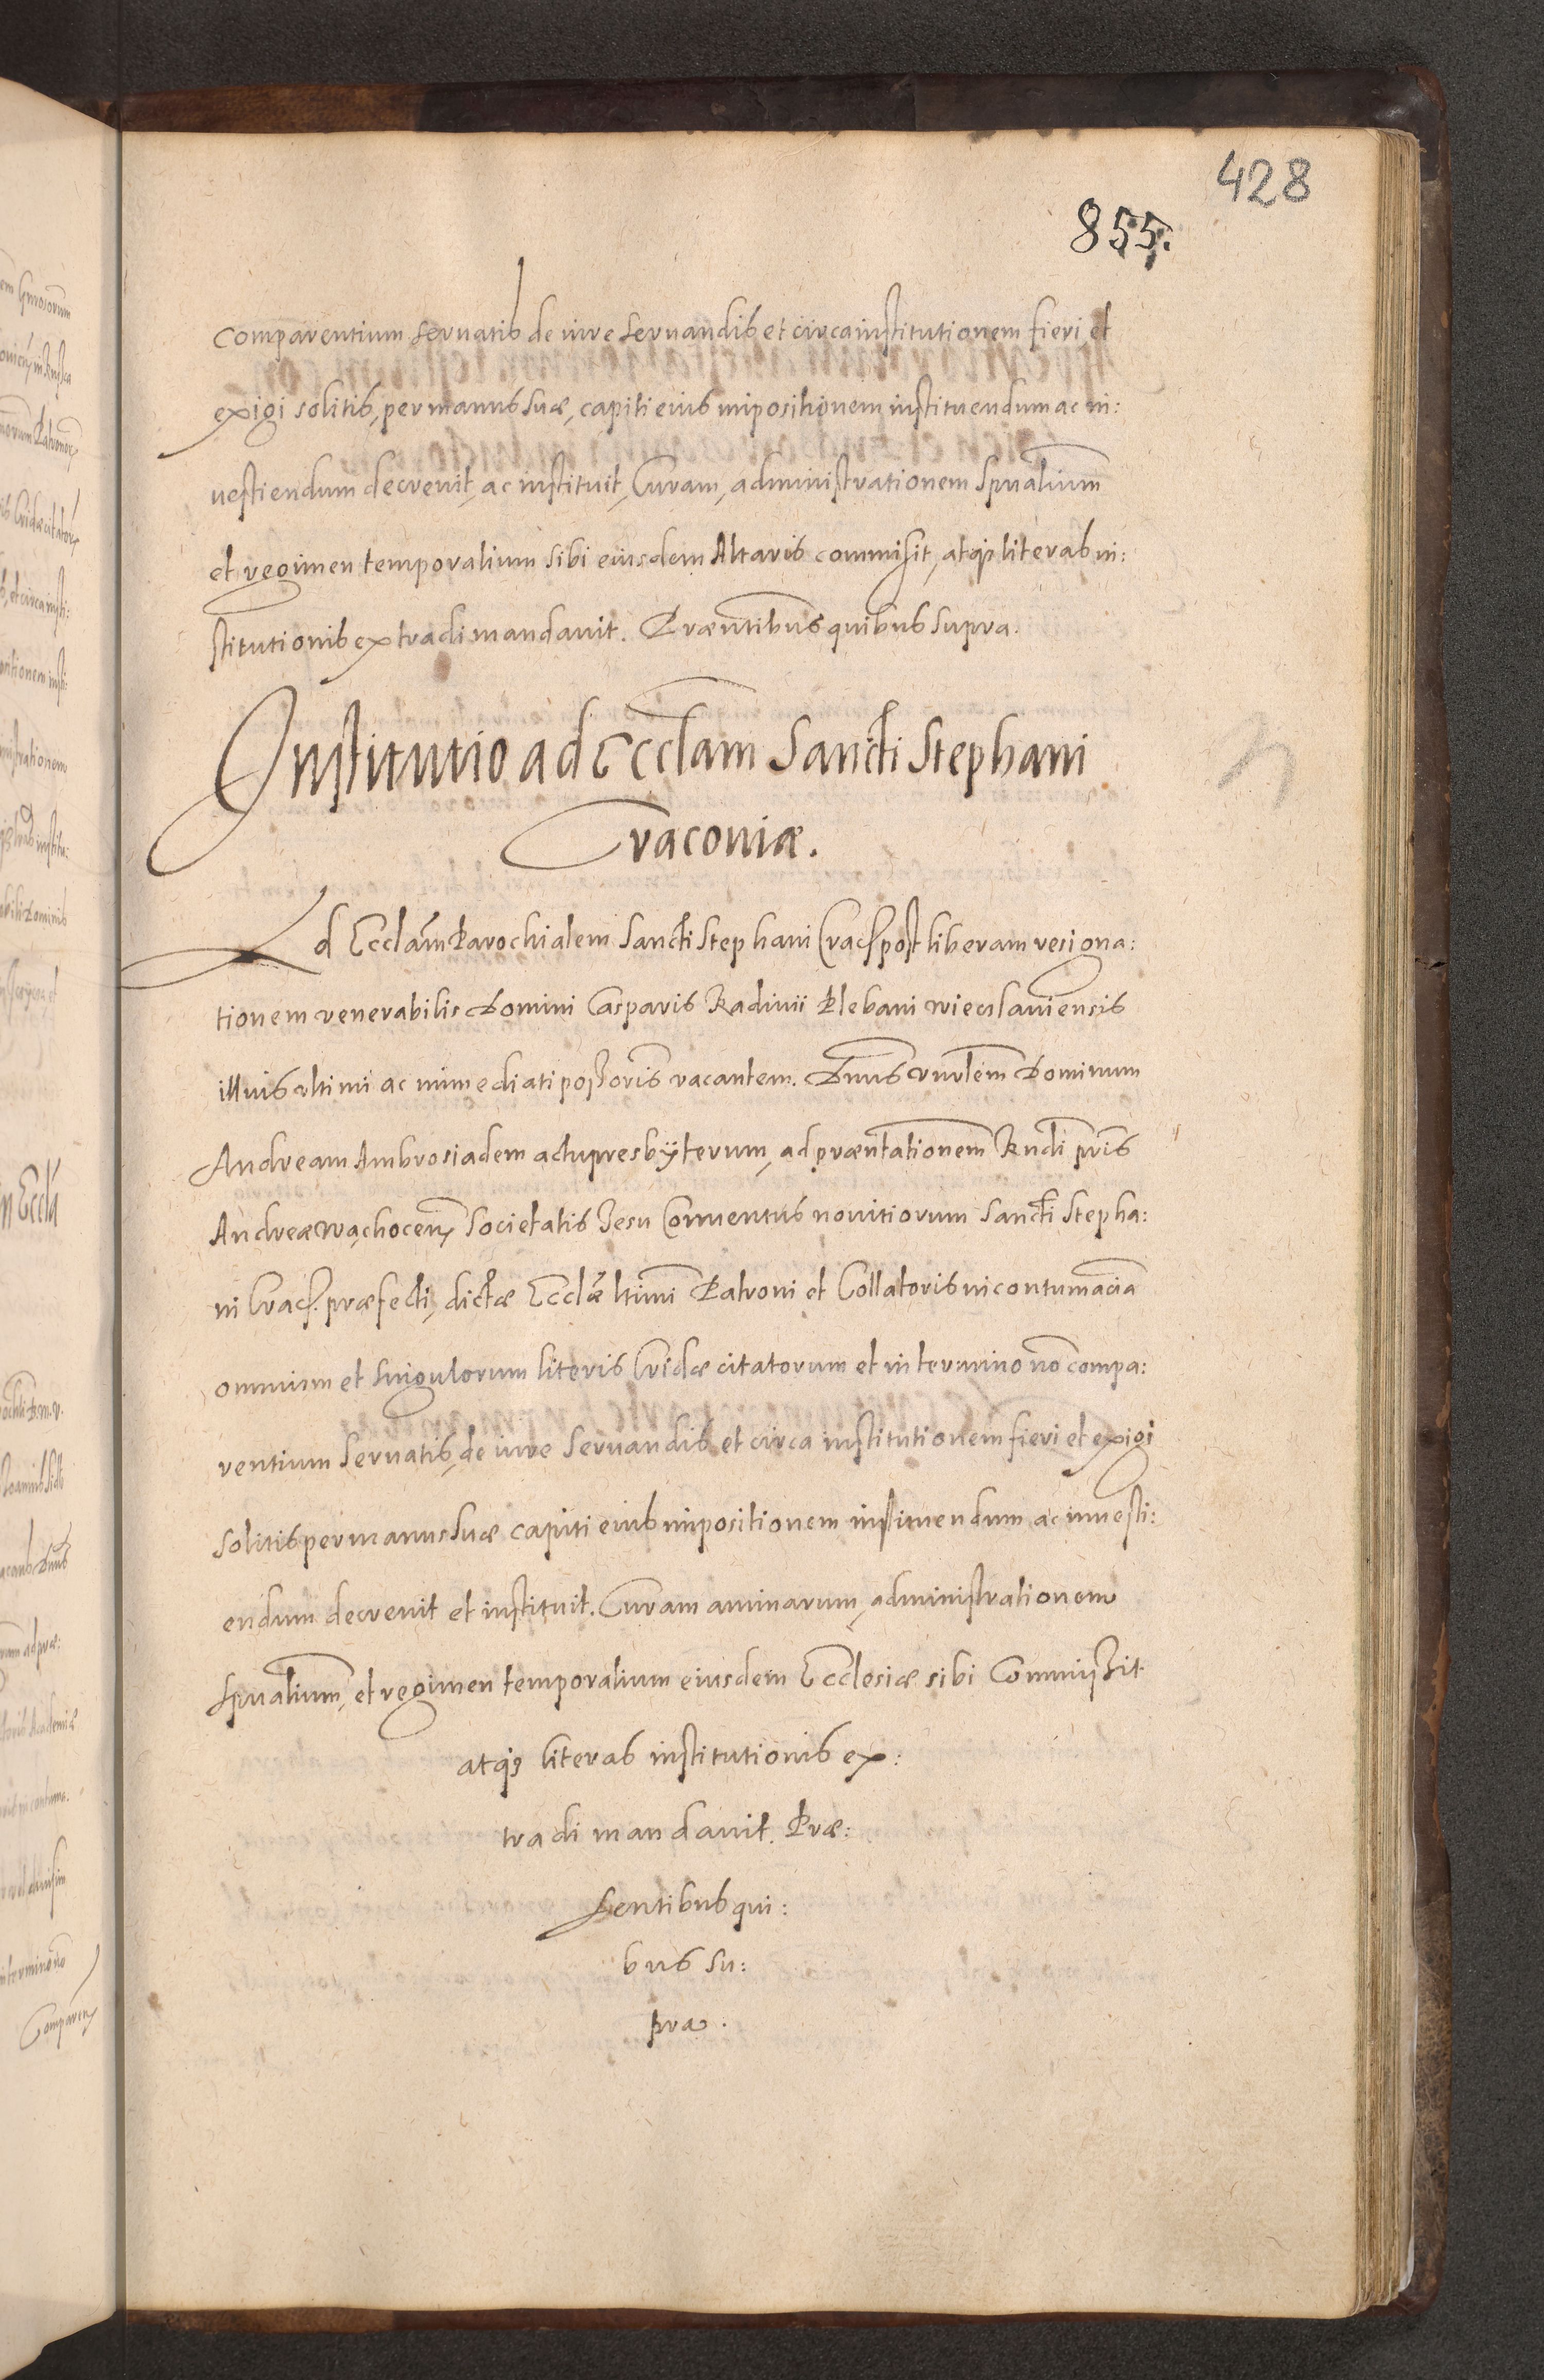 428
855.
comparentium servatis de iure servandis et circa institutionem fieri et
exigi solitis, per manus suæ, capiti eius impositionem, instituendum ac in:
uestiendum decrevit, ac instituit, Curam, administrationem Spualium
et regimen temporalium sibi eiusdem Altaris commisit, atq3 literas in:
stitutionis extradi mandauit. Præntibus quibus supra.
Institutio ad Ecclam Sancti Stephani
Cracoviæ.
Ad Ecclam Parochialem Sancti Stephani Crac. post liberam resigna:
tionem venerabilis Domini Casparis Radivii Plebani
illius ultimi ac immediati poss'oris vacantem. Dnus Dominum
Andream Ambrosiadem actu presbyterum, ad præntationem Rndi pris
Andreæ Societatis Jesu Conventus novitiorum Sancti Stepha:
ni Crac. præfecti, dictæ Ecclæ ltimi Patroni et Collatoris in contumacia
omnium et singulorum literis Cridæ citatorum et in termino no compa:
rentium servatis, de iure servandis, et circa institutionem fieri et exigi
solitis per manus suæ capiti eius impositionem instituendum ac investi:
endum decrevit et instituit. Curam animarum, administrationem
Spualium, et regimen temporalium eiusdem Ecclesiæ sibi Commissit
atq3 literas institutionis ex:
tradi mandavit. Præ:
sentibus qui:
bus su:
pra.